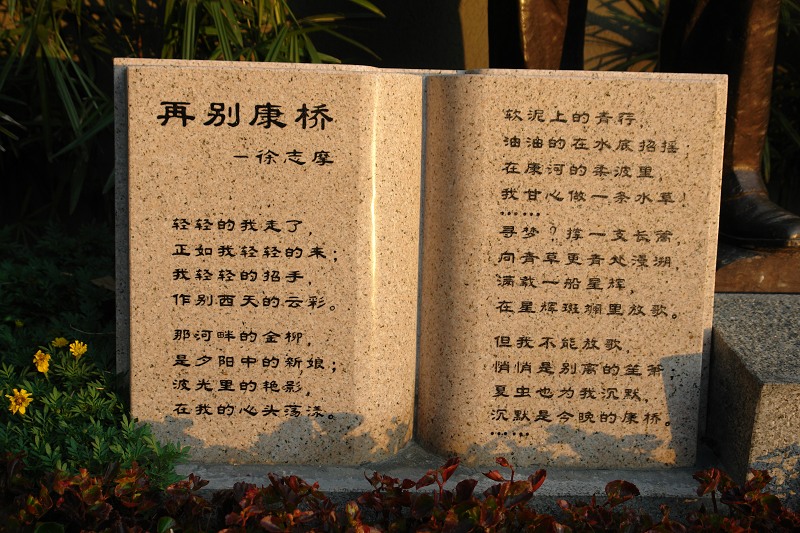 再别康桥
—徐志摩
轻轻的我走了，
正如我轻轻的来；
我轻轻的招手，
作别西天的云彩。
那河畔的金柳，
是夕阳中的新娘；
波光里的艳影，
在我的心头荡漾。
软泥上的青荇，
油油的在水底招摇；
在康河的柔波里，
我甘心做一条水草！
……
寻梦？撑一支长篙，
向青草更青处漫溯，
满载一船星辉，
在星辉斑斓里放歌。
但我不能放歌，
悄悄是别离的笙箫；
夏虫也为我沉默，
沉默是今晚的康桥。
……